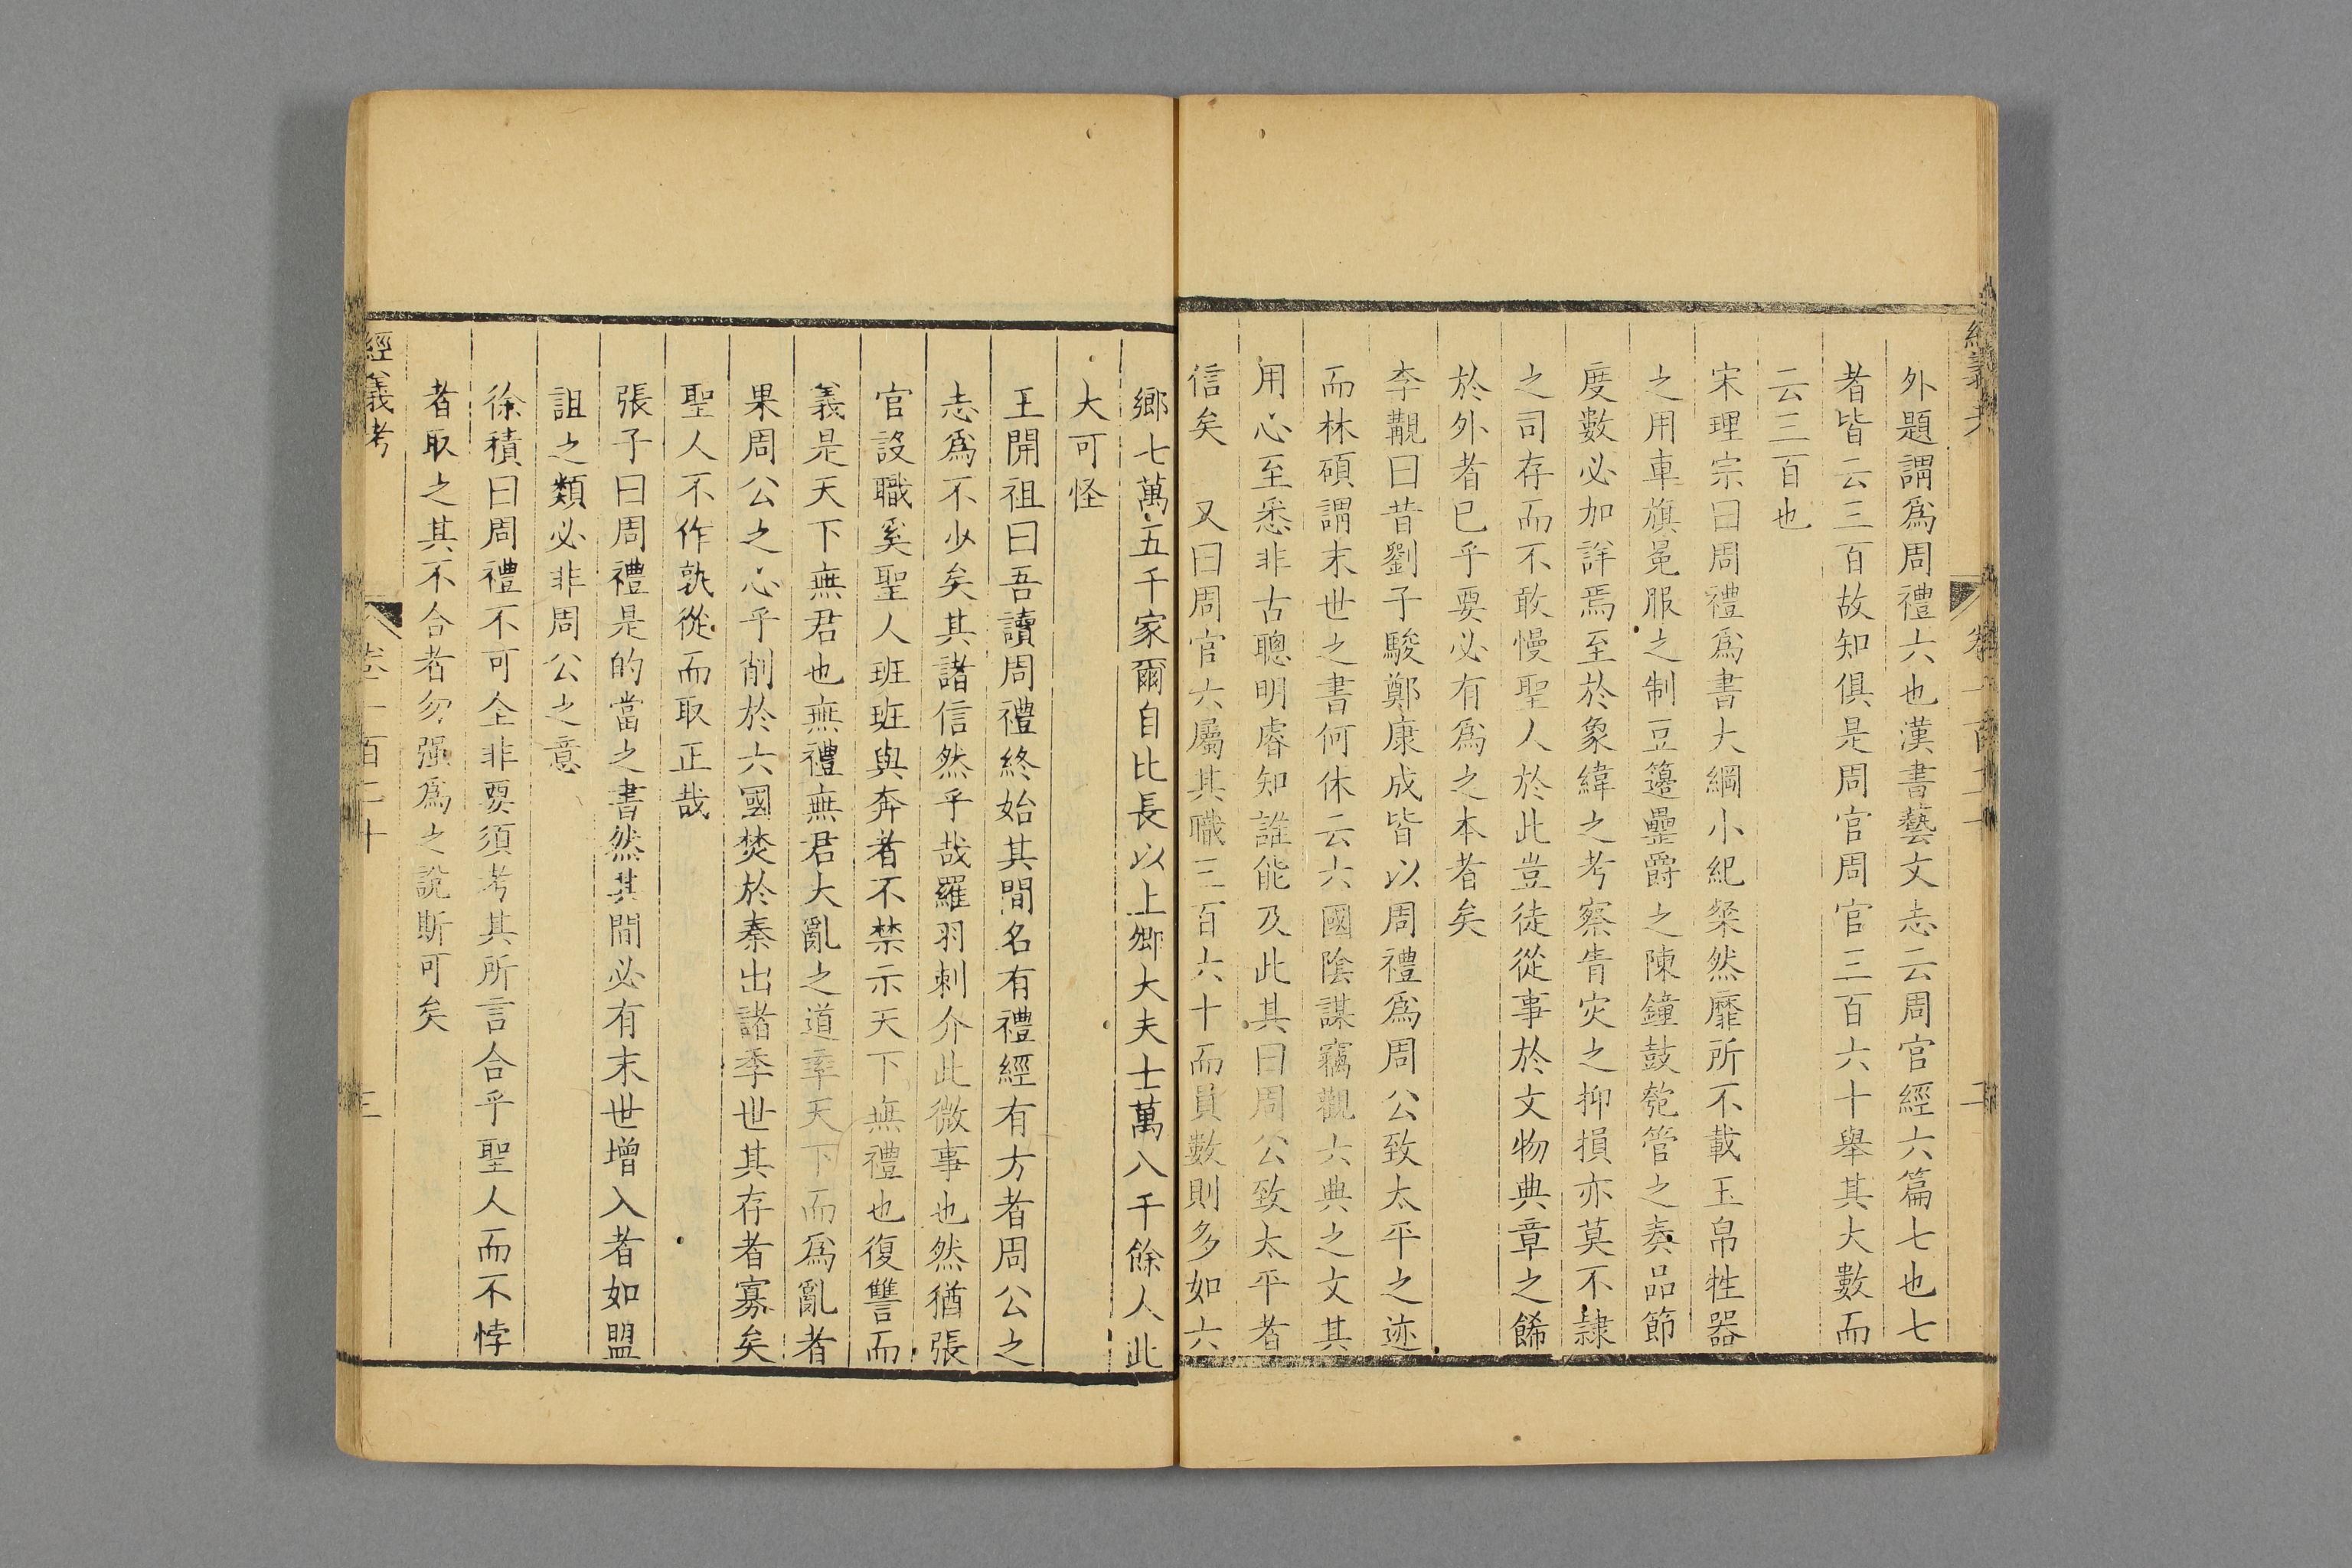 外題謂爲周禮六也漢書藝文志云周官經六篇七也七
者皆云三百故知俱是周官周官三百六十舉其大數而
云三百也
宋理宗曰周禮爲書大綱小紀粲然靡所不載玉帛牲器
之用車旗冕服之制豆籩罍爵之陳鐘鼓匏管之奏品節
度數必加詳焉至於象緯之考察眚灾之抑損亦莫不隷
之司存而不敢慢聖人於此豈徒從事於文物典章之餙
於外者已乎要必有爲之本者矣
李覯曰昔劉子駿鄭康成皆以周禮爲周公致太平之迹
而林碩謂末世之書何休云六國陰謀竊觀六典之文其
用心至悉非古聰明睿知誰能及此其曰周公致太平者
信矣　又曰周官六屬其職三百六十而員數則多如六
鄉七萬五千家爾自比長以上鄉大夫士萬八千餘人此
大可怪
王開祖曰吾讀周禮終始其間名有禮經有方者周公之
志爲不少矣其諸信然乎哉羅羽刺介此微事也然猶張
官設職奚聖人班班與奔者不禁示天下無禮也復讐而
義是天下無君也無禮無君大亂之道率天下而爲亂者
果周公之心乎削於六國焚於秦出諸季世其存者寡矣
聖人不作孰從而取正哉
張子曰周禮是的當之書然其間必有末世增入者如盟
詛之類必非周公之意
徐積曰周禮不可全非要須考其所言合乎聖人而不悖
者取之其不合者勿强爲之說斯可矣
經義考
卷一百二十
三